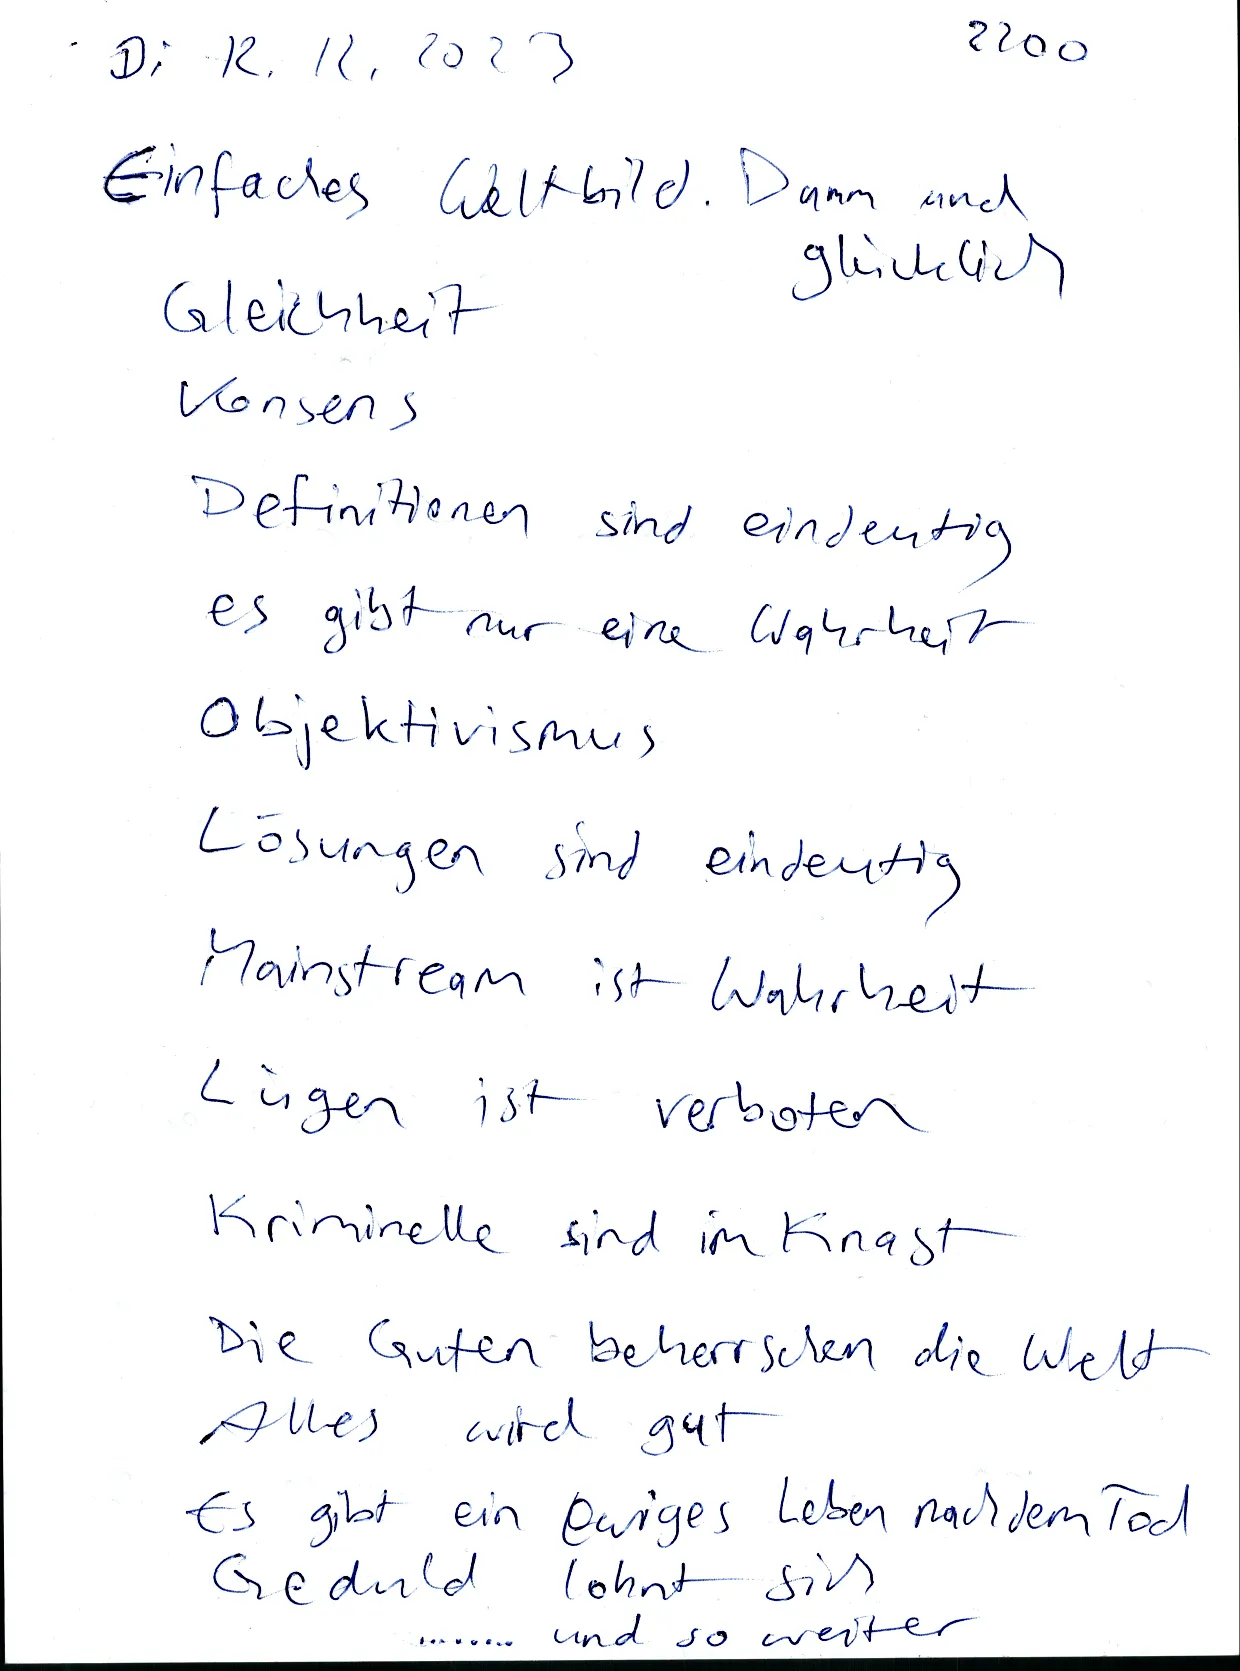 Di 12. 12. 2023 2200
Einfaches Weltbild. Dumm und
glücklich
Gleichheit
Konsens
Definitionen sind eindeutig
es gibt nur eine Wahrheit
Objektivismus
Lösungen sind eindeutig
Mainstream ist Wahrheit
Lügen ist verboten
Kriminelle sind im Knast
Die Guten beherrschen die Welt
Alles wird gut
Es gibt ein ewiges Leben nach dem Tod
Geduld lohnt sich
........ und so weiter